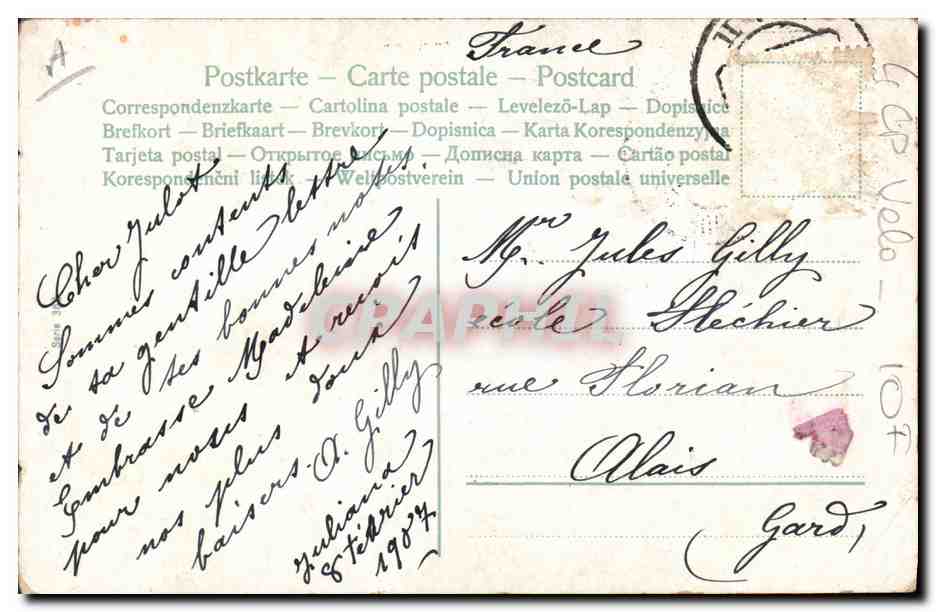 A
France
Postkarte – Carte postale – Postcard
Correspondenzkarte — Cartolina postale — Levelező-Lap — Dopisnice
Brefkort — Briefkaart — Brevkort — Dopisnica — Karta Korespondenzyjna
Tarjeta postal — Открытое письмо — Дописна карта — Cartão postal
Korespondenční lístek — Weltpostverein — Union postale universelle
Cher Julot
Sommes contents
de ta gentille lettre
et de tes bonnes notes.
Embrasse Madeleine
pour nous et reçois
nos plus doux
baisers. A. Gilly
Juliana
8 février
1907
Serie
Mr. Jules Gilly
école Fléchier
rue Florian
Alais
(Gard)
CPRHPHIL
CP Velo -
10F